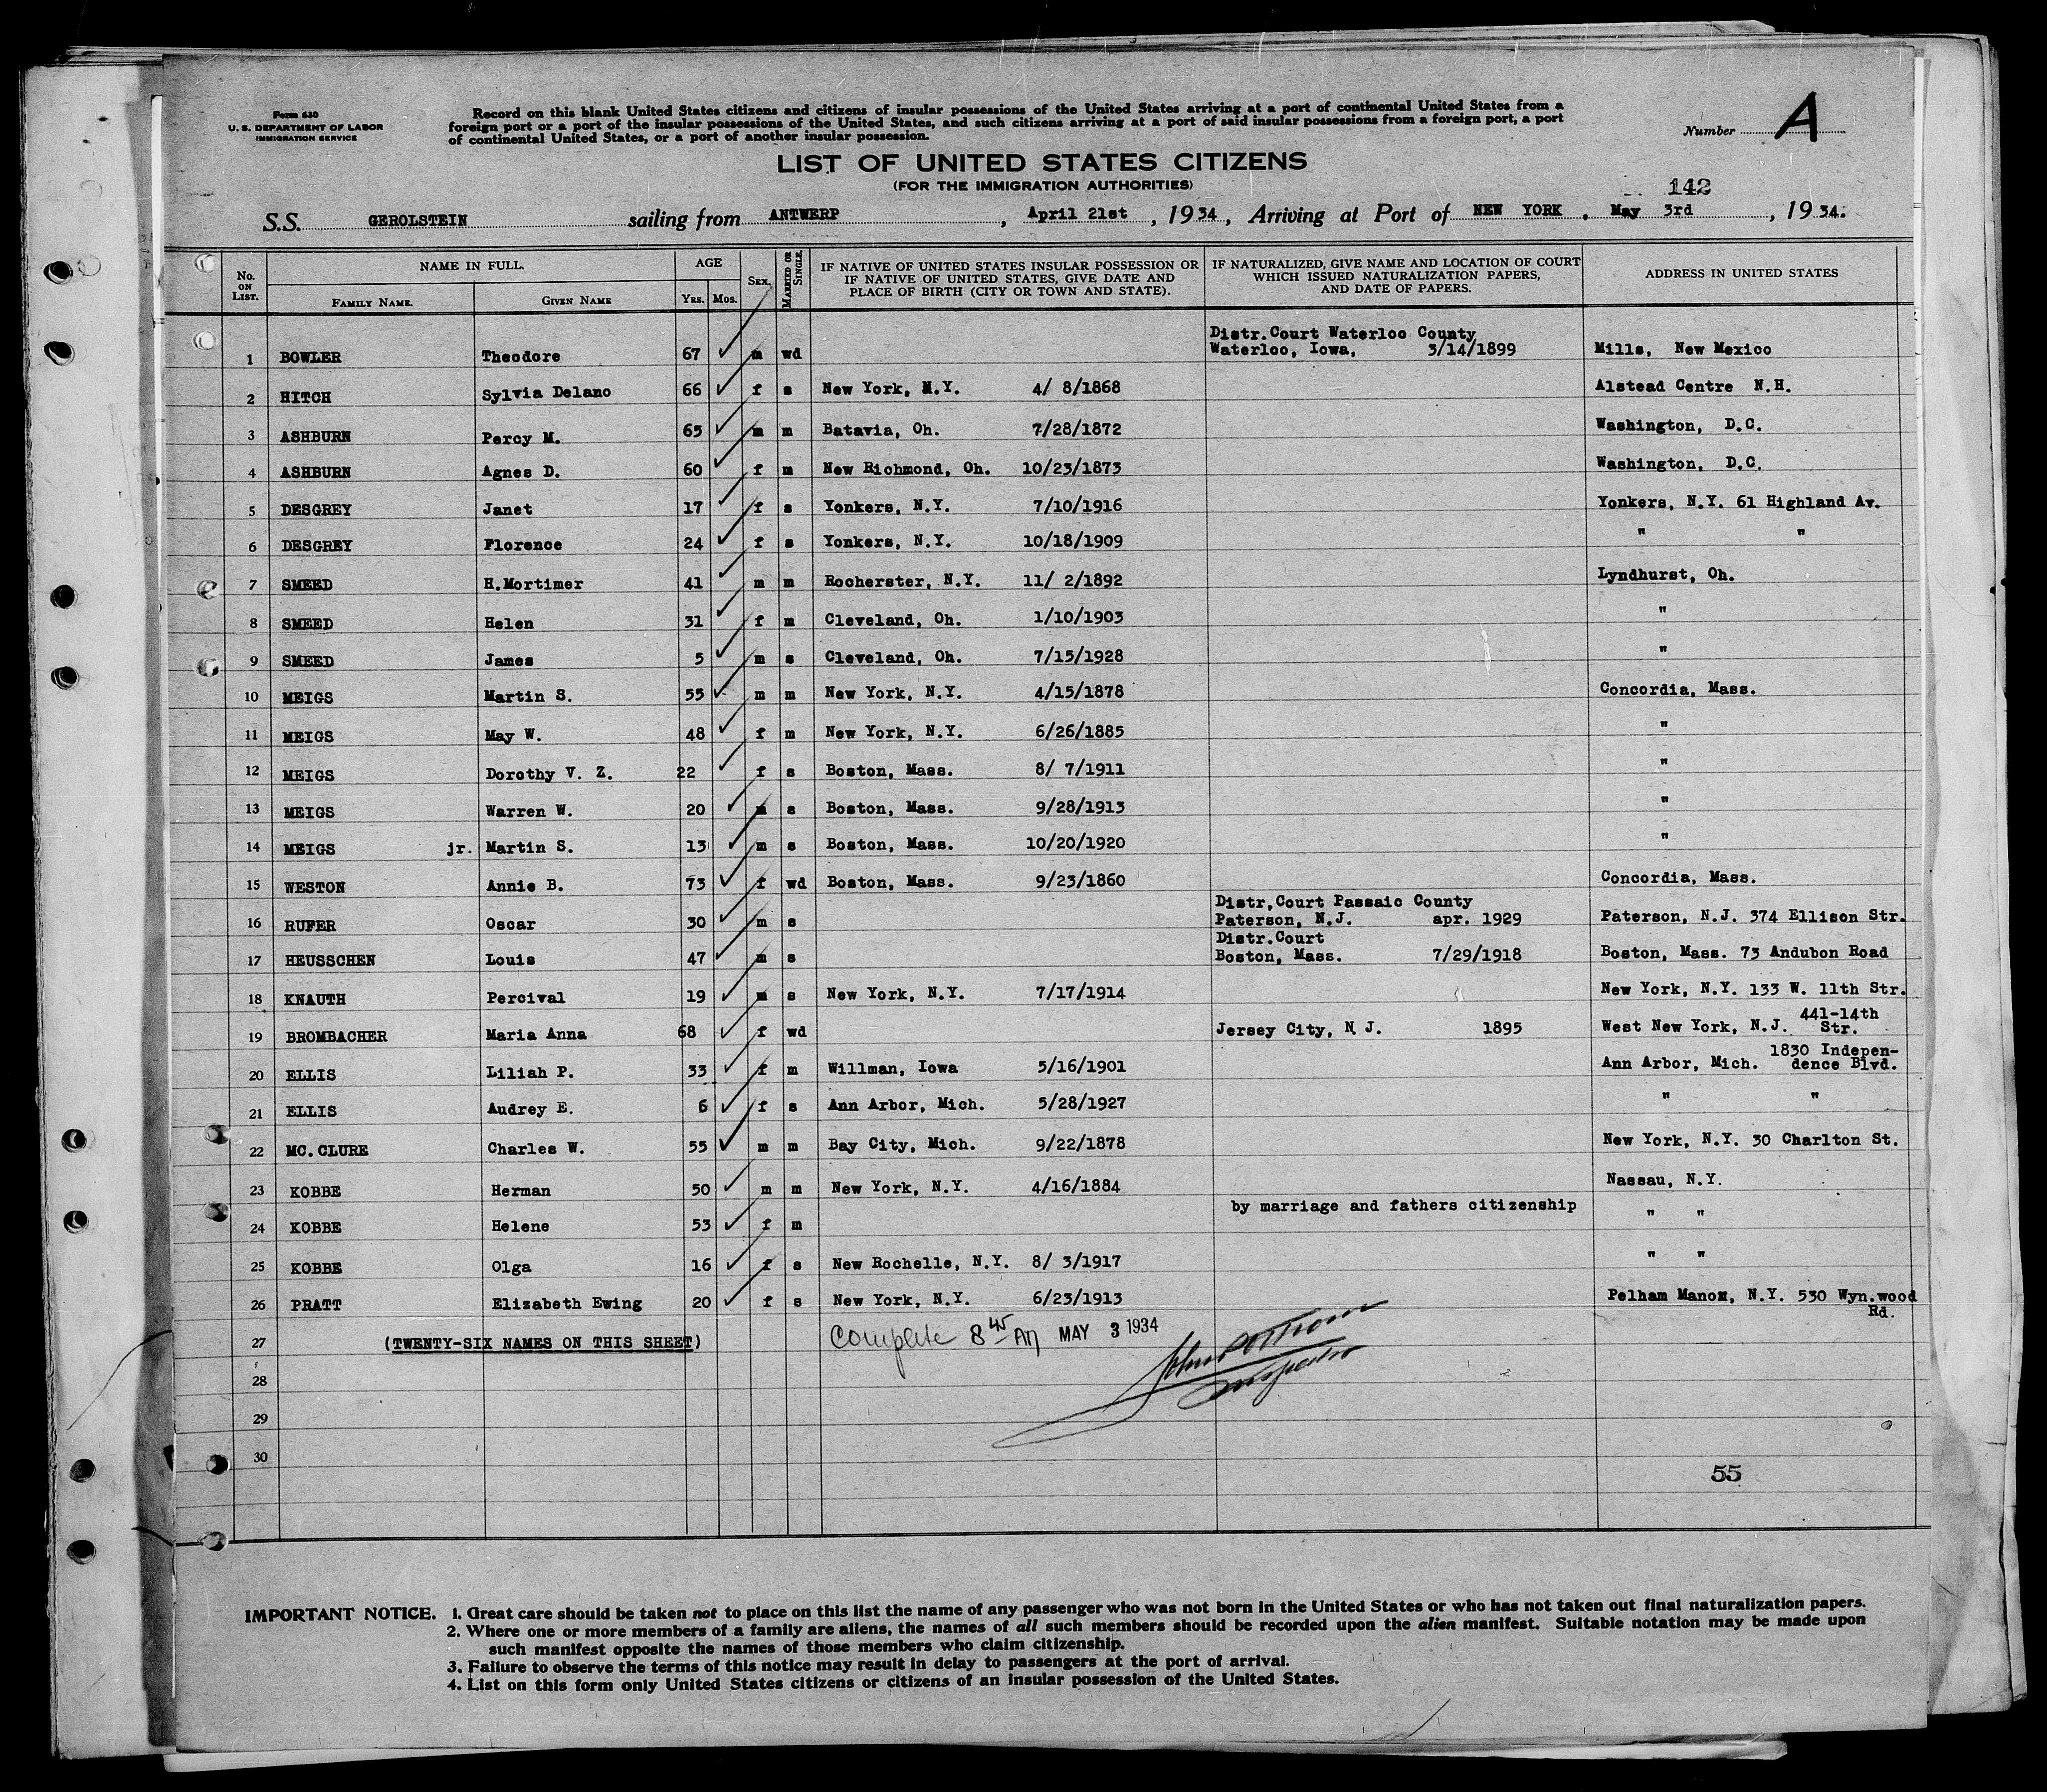 Form 630
U. S. DEPARTMENT OF LABOR
IMMIGRATION SERVICE
Record on this blank United States citizens and citizens of insular possessions of the United States arriving at a port of continental United States from a
foreign port or a port of the insular possessions of the United States, and such citizens arriving at a port of said insular possessions from a foreign port, a port
of continental United States, or a port of another insular possession.
Number A
LIST OF UNITED STATES CITIZENS
(FOR THE IMMIGRATION AUTHORITIES)
142
S.S. GEROLSTEIN sailing from ANTWERP, April 21st, 1934, Arriving at Port of NEW YORK, May 3rd, 1934.
No. ON LIST. NAME IN FULL. FAMILY NAME. GIVEN NAME AGE YRS. MOS. SEX. MARRIED OR SINGLE. IF NATIVE OF UNITED STATES INSULAR POSSESSION OR IF NATIVE OF UNITED STATES, GIVE DATE AND PLACE OF BIRTH (CITY OR TOWN AND STATE). IF NATURALIZED, GIVE NAME AND LOCATION OF COURT WHICH ISSUED NATURALIZATION PAPERS, AND DATE OF PAPERS. ADDRESS IN UNITED STATES
Distr.Court Waterloo County
1 BOWLER Theodore 67 m wd Waterloo, Iowa, 3/14/1899 Mills, New Mexico
2 HITCH Sylvia Delano 66 f s New York, N.Y. 4/ 8/1868 Alstead Centre N.H.
3 ASHBURN Percy M. 65 m m Batavia, Oh. 7/28/1872 Washington, D.C.
4 ASHBURN Agnes D. 60 f m New Richmond, Oh. 10/23/1873 Washington, D.C.
5 DESGREY Janet 17 f s Yonkers, N.Y. 7/10/1916 Yonkers, N.Y. 61 Highland Av.
6 DESGREY Florence 24 f s Yonkers, N.Y. 10/18/1909 " "
7 SMEED H.Mortimer 41 m m Rocherster, N.Y. 11/ 2/1892 Lyndhurst, Oh.
8 SMEED Helen 31 f m Cleveland, Oh. 1/10/1903 "
9 SMEED James 5 m s Cleveland, Oh. 7/15/1928 "
10 MEIGS Martin S. 55 m m New York, N.Y. 4/15/1878 Concordia, Mass.
11 MEIGS May W. 48 f m New York, N.Y. 6/26/1885 "
12 MEIGS Dorothy V. Z. 22 f s Boston, Mass. 8/ 7/1911 "
13 MEIGS Warren W. 20 m s Boston, Mass. 9/28/1913 "
14 MEIGS jr. Martin S. 13 m s Boston, Mass. 10/20/1920 "
15 WESTON Annie B. 73 f wd Boston, Mass. 9/23/1860 Concordia, Mass.
Distr,Court Passaic County
16 RUFER Oscar 30 m s Paterson, N.J. apr. 1929 Paterson, N.J. 374 Ellison Str.
Distr.Court
17 HEUSSCHEN Louis 47 m s Boston, Mass. 7/29/1918 Boston, Mass. 73 Andubon Road
18 KNAUTH Percival 19 m s New York, N.Y. 7/17/1914 New York, N.Y. 133 W. 11th Str.
441-14th
19 BROMBACHER Maria Anna 68 f wd Jersey City, N.J. 1895 West New York, N.J. Str.
1830 Indepen-
20 ELLIS Liliah P. 33 f m Willman, Iowa 5/16/1901 Ann Arbor, Mich. dence Blvd.
21 ELLIS Audrey E. 6 f s Ann Arbor, Mich. 5/28/1927 " "
22 MC.CLURE Charles W. 55 m m Bay City, Mich. 9/22/1878 New York, N.Y. 30 Charlton St.
23 KOBBE Herman 50 m m New York, N.Y. 4/16/1884 Nassau, N.Y.
by marriage and fathers citizenship
24 KOBBE Helene 53 f m " "
25 KOBBE Olga 16 f s New Rochelle, N.Y. 8/ 3/1917 " "
26 PRATT Elizabeth Ewing 20 f s New York, N.Y. 6/23/1913 Pelham Manor, N.Y. 530 Wyn.wood
Rd.
27 (TWENTY-SIX NAMES ON THIS SHEET) Complete 8 45 AM MAY 3 1934
John
Inspector
28
29
30
55
IMPORTANT NOTICE. 1. Great care should be taken not to place on this list the name of any passenger who was not born in the United States or who has not taken out final naturalization papers.
2. Where one or more members of a family are aliens, the names of all such members should be recorded upon the alien manifest. Suitable notation may be made upon
such manifest opposite the names of those members who claim citizenship.
3. Failure to observe the terms of this notice may result in delay to passengers at the port of arrival.
4. List on this form only United States citizens or citizens of an insular possession of the United States.